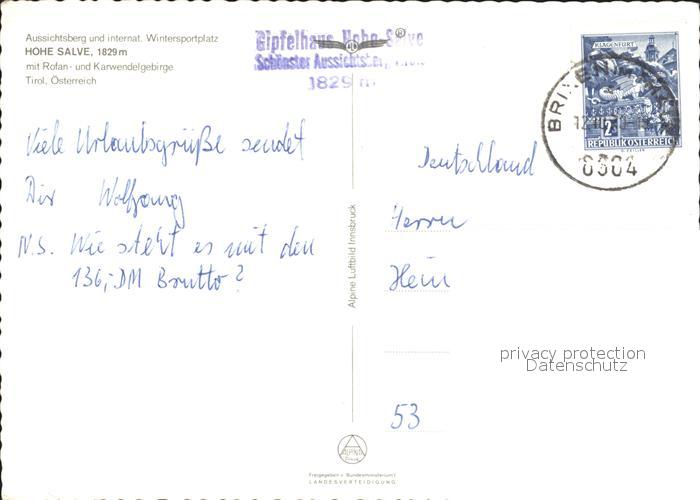 Aussichtsberg und internat. Wintersportplatz
HOHE SALVE, 1829 m
mit Rofan- und Karwendelgebirge
Tirol, Österreich
Gipfelhaus Hohe Salve
Schönster Aussichtsberg
1829 m
KLAGENFURT
2
REPUBLIK ÖSTERREICH
BRIXEN
6364
Viele Urlaubsgrüße sendet
Dir Wolfgang
N.S. Wie steht es mit den
136,- DM Brutto?
Alpine Luftbild Innsbruck
Deutschland
Herrn
Hein
53
privacy protection
Datenschutz
Freigegeben v. Bundesministerium f.
LANDESVERTEIDIGUNG